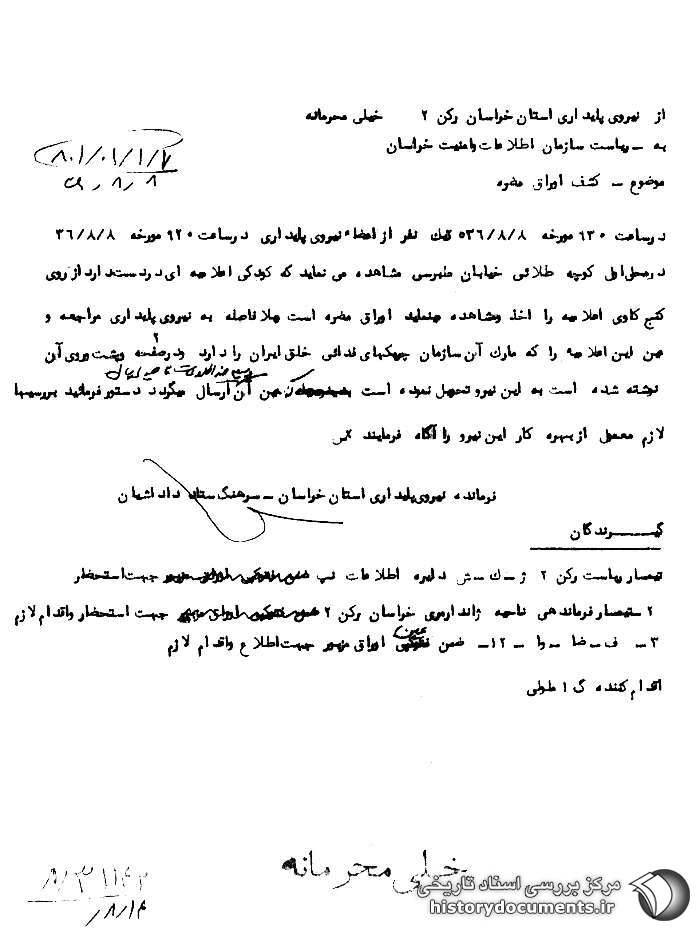 از نیروی پایداری استان خراسان رکن ۲ خیلی محرمانه
به - ریاست سازمان اطلاعات وامنیت خراسان
۸۰۱/۰۱/۱/۷
موضوع - کشف اوراق مضره
۸/۸
درساعت ۹۳۰ مورخه ۵۳۶/۸/۸ یک نفر از اعضاء نیروی پایداری درساعت ۹۲۰ مورخه ۳۶/۸/۸
درمحل اول کوچه طلائی خیابان طبرسی مشاهده می نماید که کودکی اعلامیه ای دردست دارد از روی
کنج کاوی اعلامیه را اخذ ومشاهده مینماید اوراق مضره است بلا فاصله به نیروی پایداری مراجعه و
عین این اعلامیه را که مارک آن سازمان چریکهای فدائی خلق ایران را دارد ودر ۲ صفحه وپشت وروی آن
نوشته شده است به این نیرو تحویل نموده است عین آن ارسال میگردد دستور فرمائید بررسیها
لازم معمول از بهره کار این نیرو را آگاه فرمایند
فرمانده نیروی پایداری استان خراسان - سرهنگ ستاد داداشیان
گیرندگان
تیمسار ریاست رکن ۲ دایره اطلاعات جهت استحضار
۲ - تیمسار فرماندهی ناحیه ژاندارمری خراسان رکن ۲ جهت استحضار واقدام لازم
۳ - ف - ضا - وا - ۱۲ - ضمن عین اوراق مزبور جهت اطلاع واقدام لازم
اقدام کننده گ ۱ طولی
خیلی محرمانه
۹/۳۱۱۴۲
۸/۱۴
مرکز بررسی اسناد تاریخی
historydocuments.ir